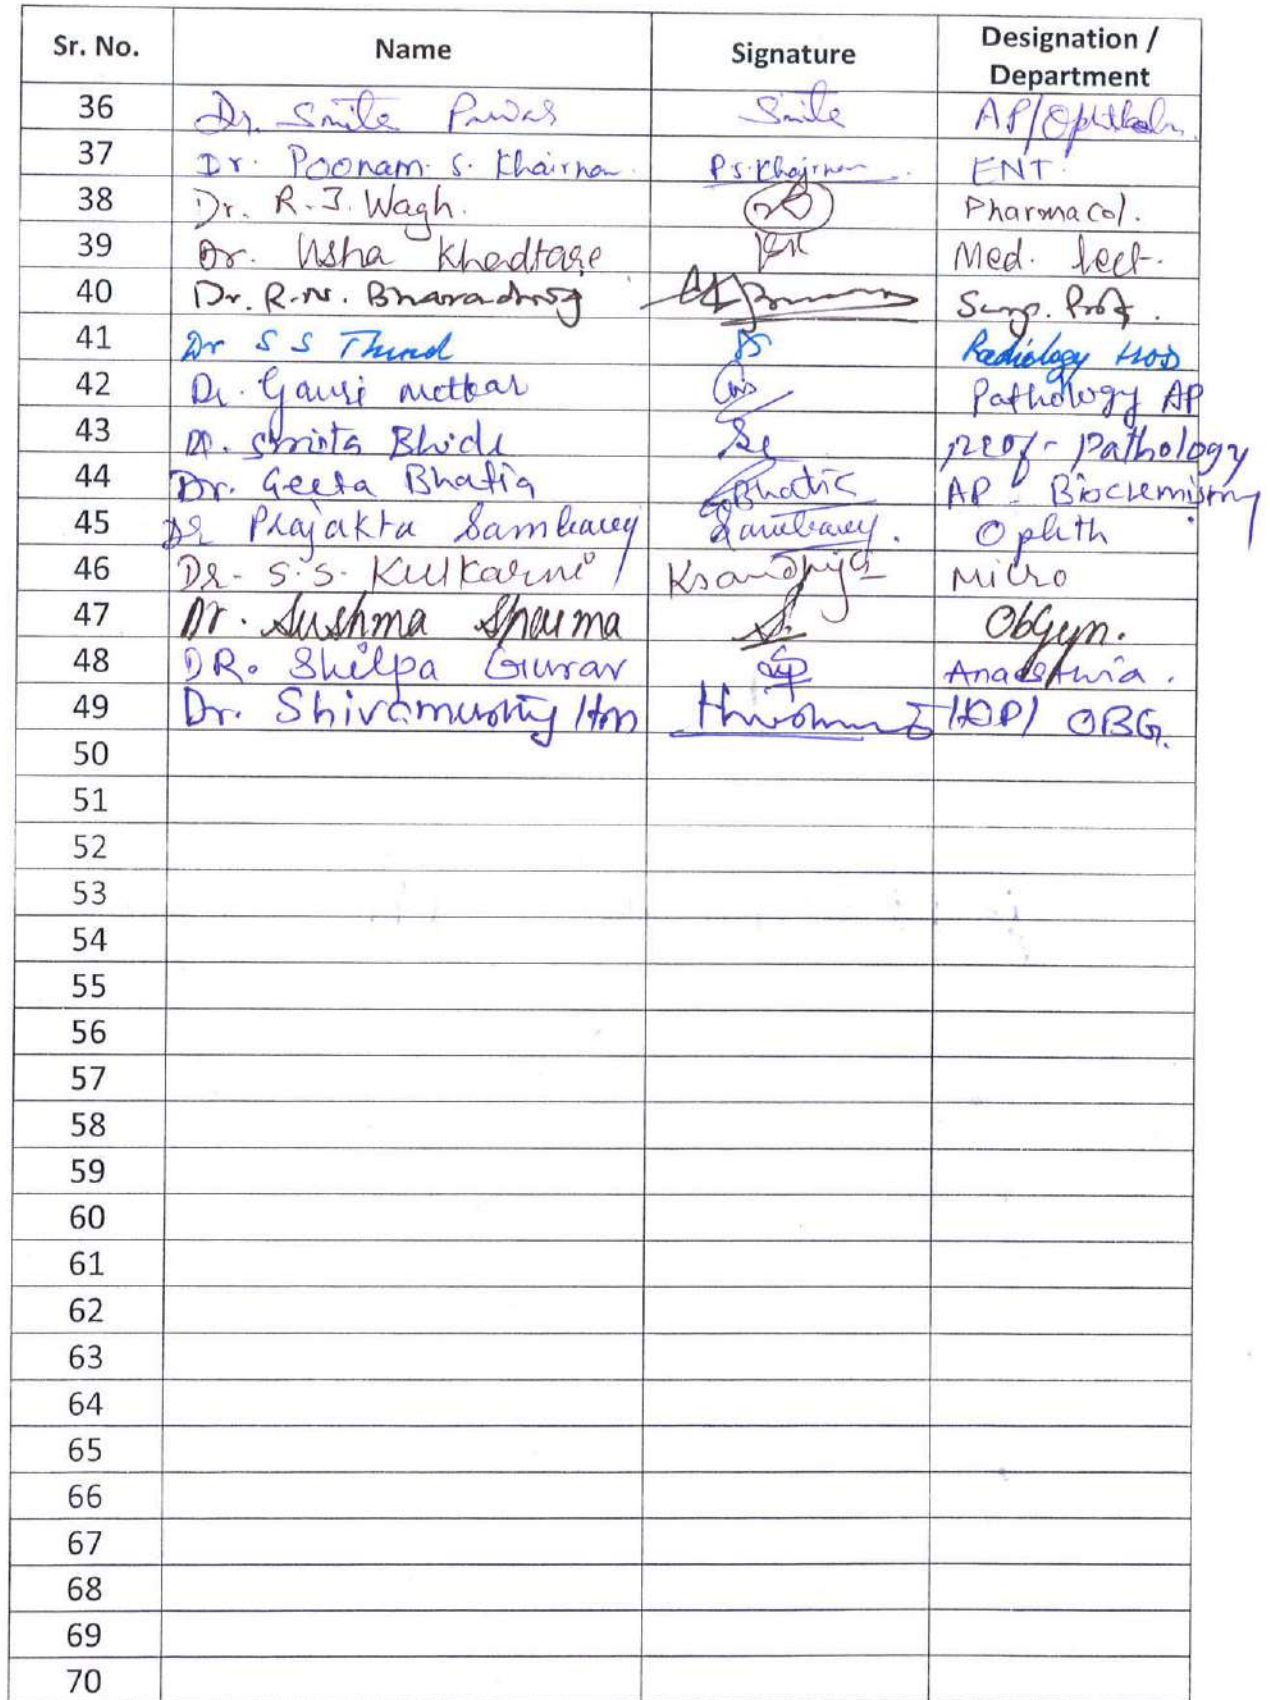 Sr. No. Name Signature Designation / Department
36 Dr. Smita Pawar Smita AP/Ophthalm.
37 Dr. Poonam. S. Khairnar. P.S.Khairnar. ENT
38 Dr. R.J. Wagh. Pharmacol.
39 Dr. Usha Khadtare Med. lect.
40 Dr. R.N. Bharadwaj Surg. Prof.
41 Dr S S Thind Radiology HOD
42 Dr. Gauri Pathology AP
43 Dr. Smita Bhide Prof - Pathology
44 Dr. Geeta Bhatia GBhatia AP - Biochemistry
45 Dr Prajakta Sambarey Sambarey. Ophth
46 Dr. S.S. Kulkarni Micro
47 Dr. Sushma Sharma S. ObGyn.
48 DR. Shilpa Gurav Anaesthesia.
49 Dr. OBG.
50
51
52
53
54
55
56
57
58
59
60
61
62
63
64
65
66
67
68
69
70